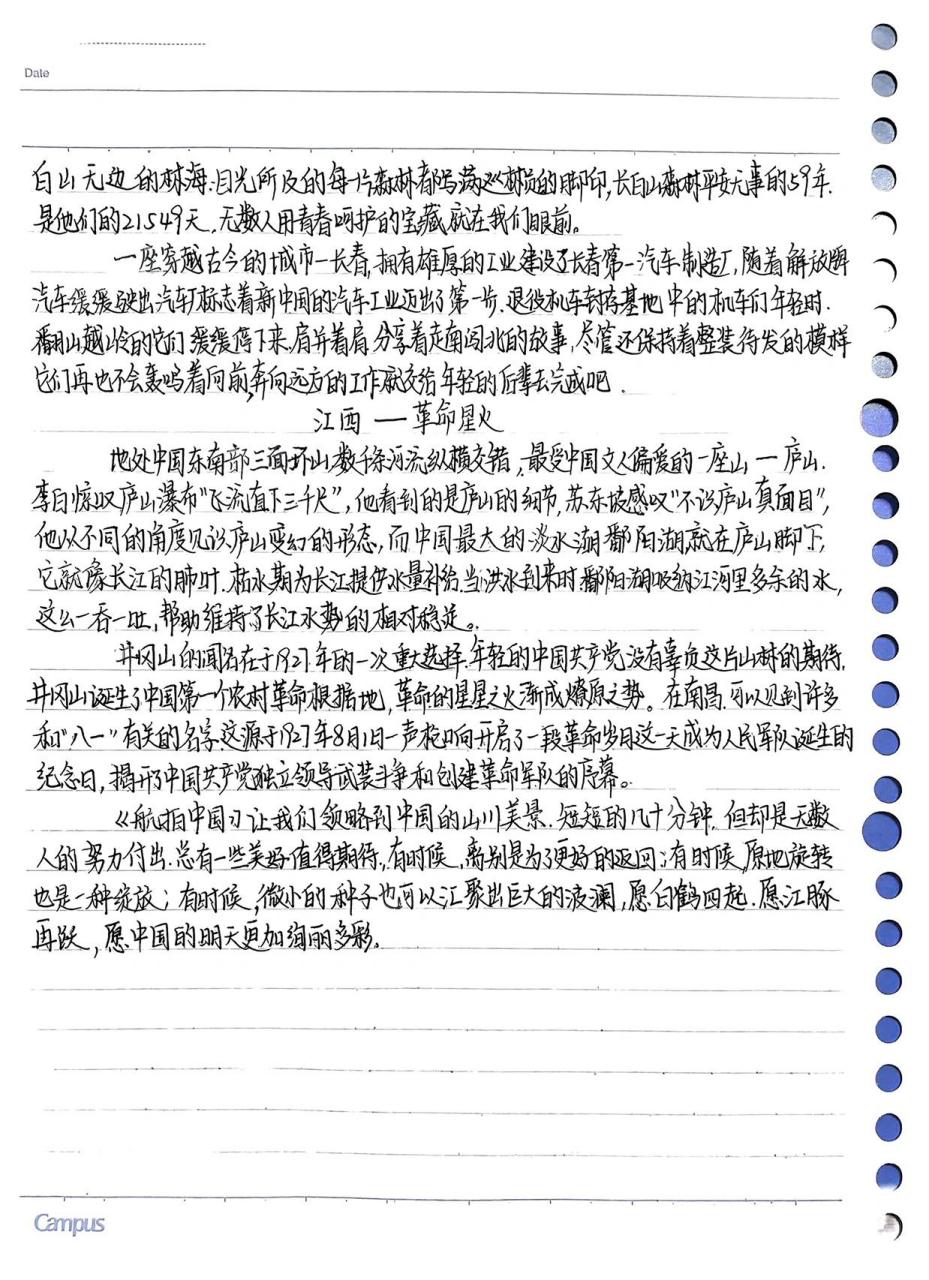 Date
白山无边的林海.目光所及的每一片森林都写满巡林员的脚印,长白山森林平安无事的59年.
是他们的21549天.无数人用青春呵护的宝藏就在我们眼前。
一座穿越古今的城市一长春,拥有雄厚的工业建设了长春第一汽车制造厂,随着解放牌
汽车缓缓驶出汽车厂标志着新中国的汽车工业迈出了第一步.退役机车封存基地中的机车们年轻时.
翻山越岭的它们缓缓停下来.肩并着肩.分享着走南闯北的故事,尽管还保持着整装待发的模样
它们再也不会轰鸣着向前,奔向远方的工作就交给年轻的后辈去完成吧.
江西 一 革命星火
地处中国东南部三面环山.数千条河流纵横交错,最受中国文人偏爱的一座山一庐山.
李白惊叹庐山瀑布“飞流直下三千尺”,他看到的是庐山的细节,苏东坡感叹“不识庐山真面目”,
他从不同的角度见识庐山变幻的形态,而中国最大的淡水湖鄱阳湖就在庐山脚下,
它就像长江的肺叶.枯水期为长江提供水量补给.当洪水到来时.鄱阳湖吸纳江河里多余的水,
这么一吞一吐,帮助维持了长江水势的相对稳定。
井冈山的闻名在于1927年的一次重大选择.年轻的中国共产党没有辜负这片山林的期待.
井冈山诞生了中国第一个农村革命根据地,革命的星星之火渐成燎原之势。在南昌.可以见到许多
和“八一”有关的名字.这源于1927年8月1日一声枪响开启了一段革命岁月这一天成为人民军队诞生的
纪念日,揭开了中国共产党独立领导武装斗争和创建革命军队的序幕。
《航拍中国》让我们领略到中国的山川美景.短短的几十分钟.但却是无数
人的努力付出.总有一些美好值得期待,有时候,离别是为了更好的返回;有时候,原地旋转
也是一种绽放;有时候,微小的种子也可以汇聚出巨大的波澜,愿白鹤四起.愿江豚
再跃,愿中国的明天更加绚丽多彩。
Campus